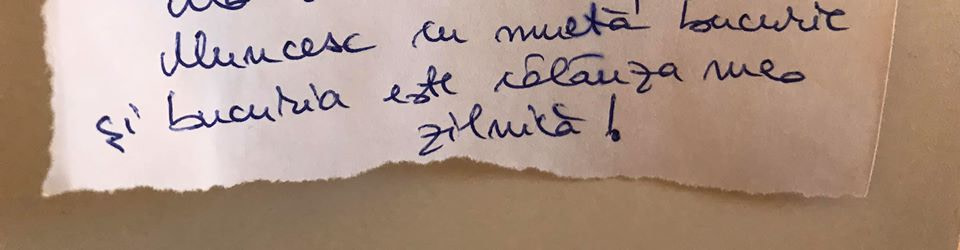 Muncesc cu multă bucurie
și bucuria este călăuza mea
zilnică!